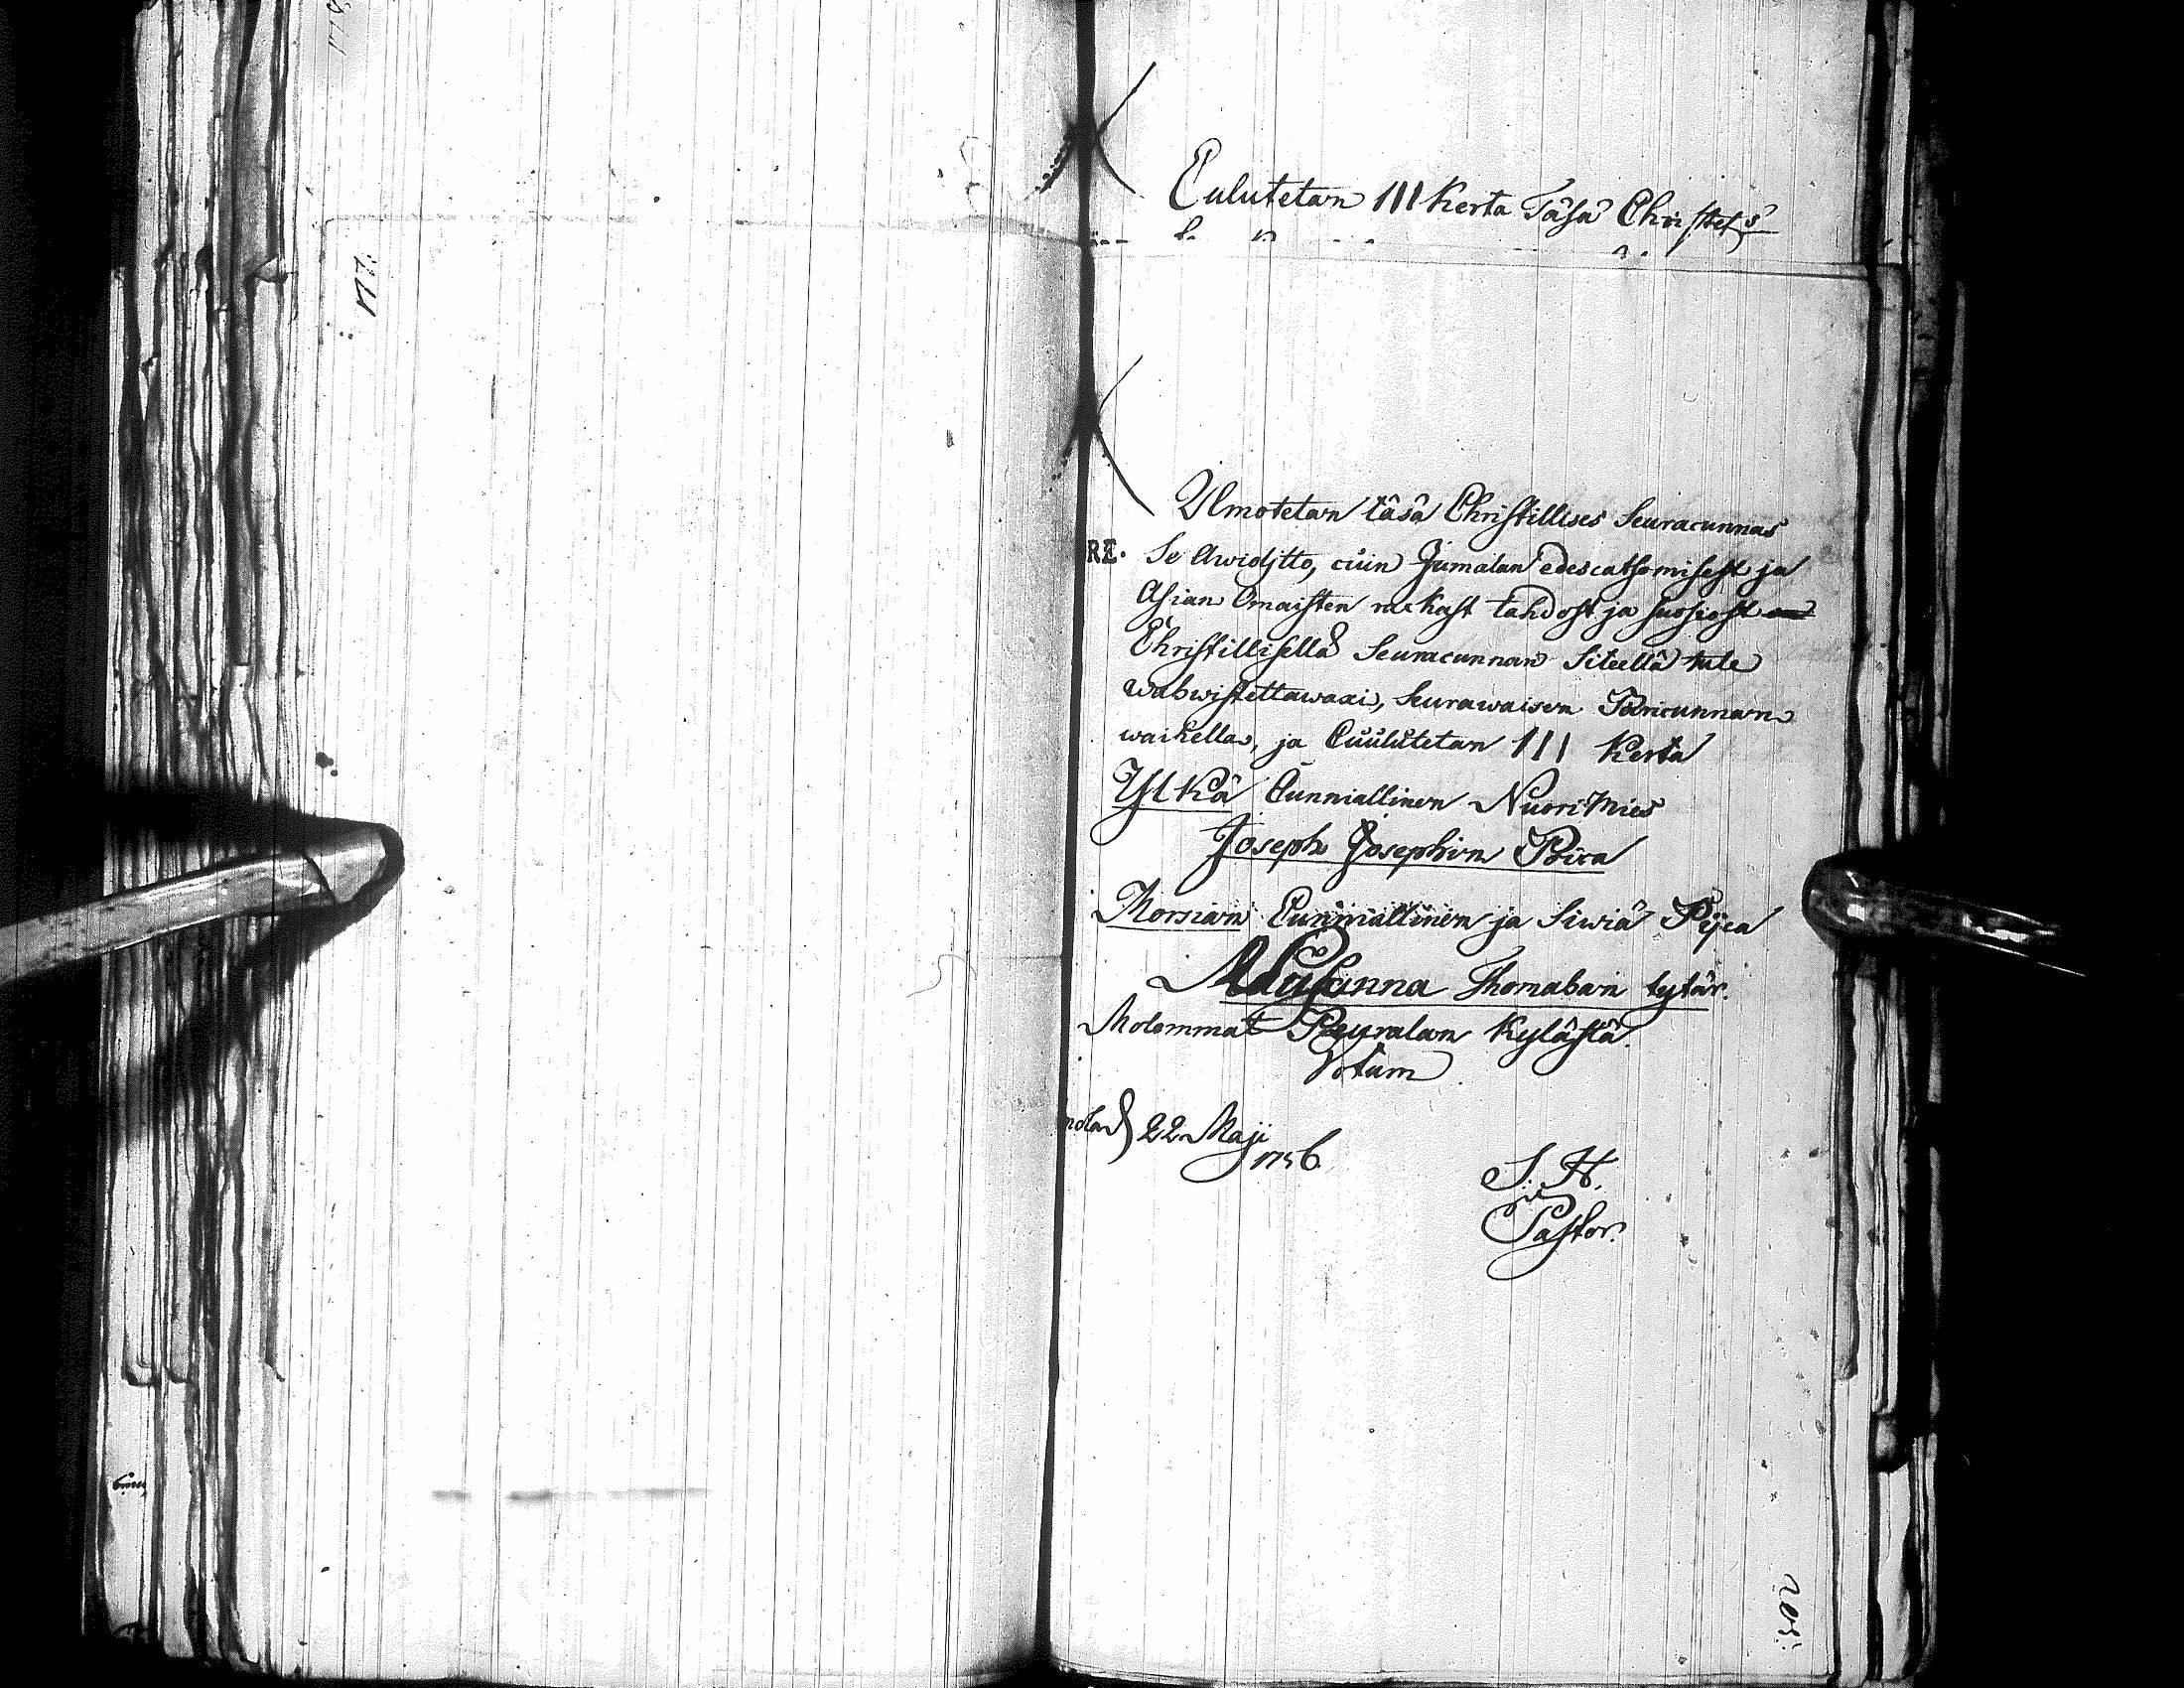 Culutetan III Kerta Täsä Christel:s
177.
Ilmotetan täsä Christillises Seuracunnas
Se Awioljtto, cuin Jumalan edescatsomisest ja
Asian Omaisten rackast tahdost ja suosiost
Christillisellä Seuracunnan Siteellä tule
wahwistettawaxi, Seurawaisen Pariscunnan
waihella, ja Cuulutetan III Kerta
Yl Kä Cunniallinen Nuori Mies
Joseph Josephin Poica
Morsian Cunniallinen ja Siwiä Pijca
Susanna Thomaxen tytär.
Molemmat Peuralan Kylästä.
Votum
22 Maji
1756
S. H.
Pastor.
203.